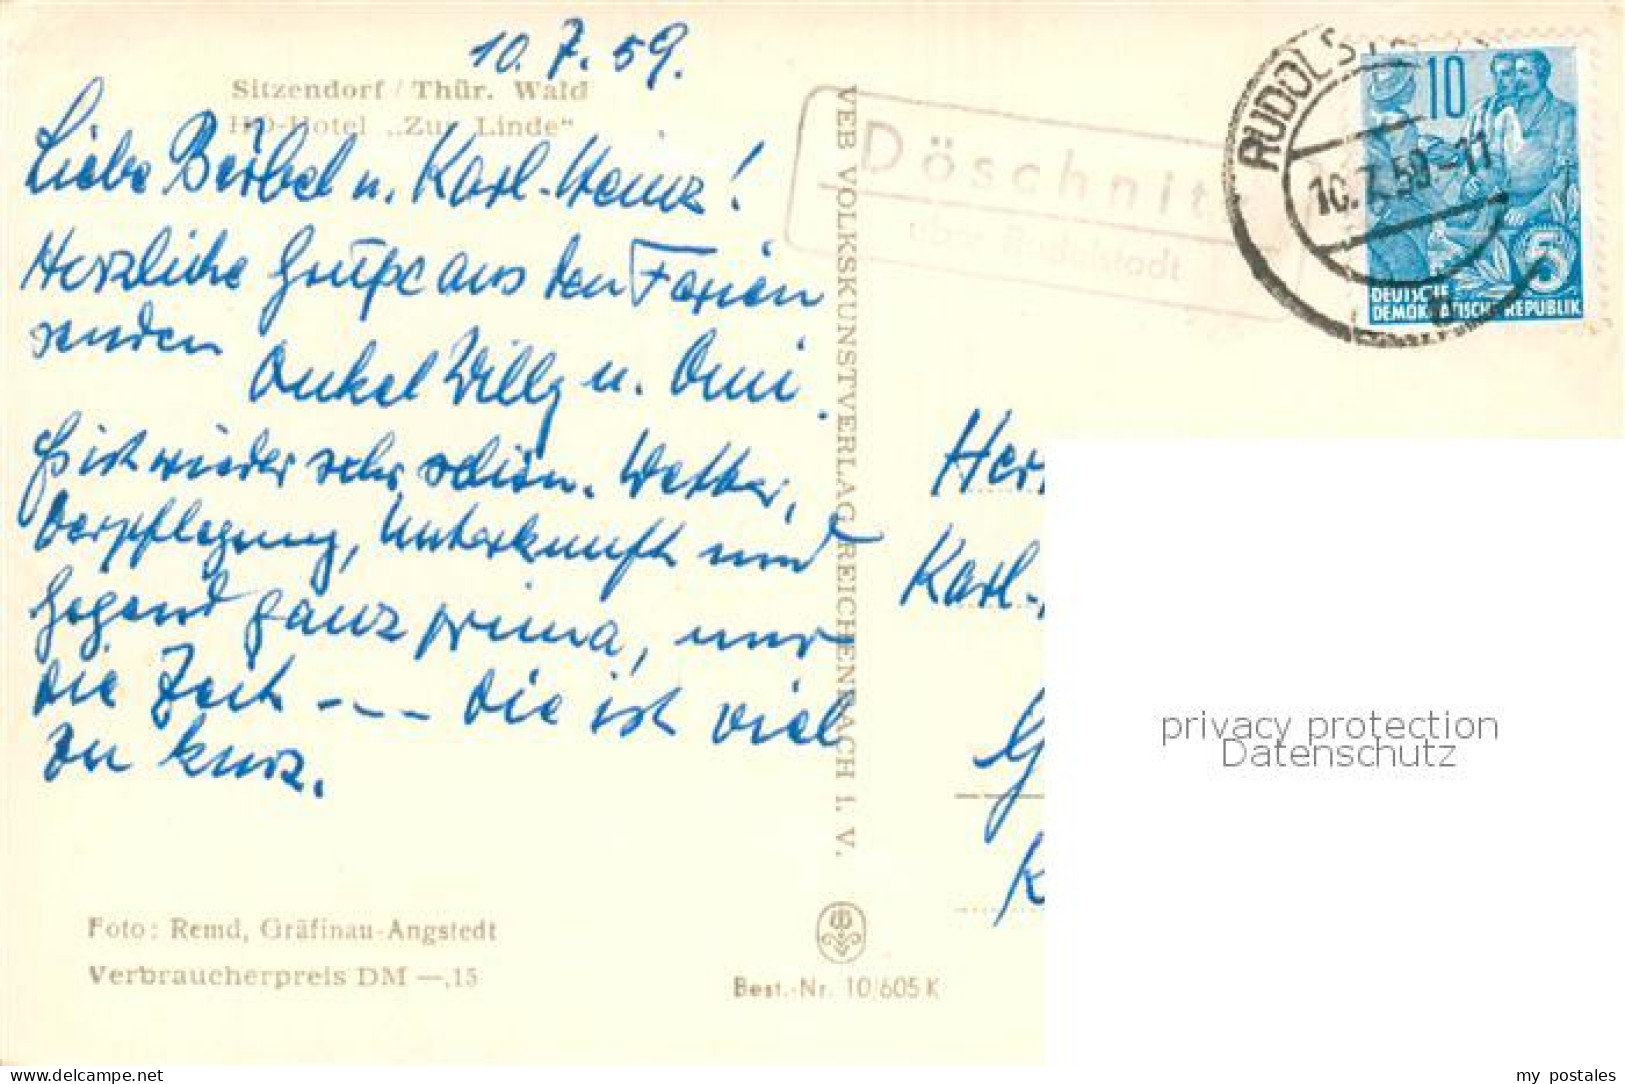 10.7.59.
Sitzendorf / Thür. Wald
HO-Hotel „Zur Linde“
Liebe Bärbel u. Karl-Heinz!
Herzliche Grüße aus den Ferien
senden
Onkel Willy u. Omi.
Es ist wieder sehr schön. Wetter,
Verpflegung, Unterkunft und
Gegend ganz prima, nur
die Zeit --- die ist viel
zu kurz.
Foto: Remd, Gräfinau-Angstedt
Verbraucherpreis DM —,15
VEB VOLKSKUNSTVERLAG REICHENBACH I. V.
Best.-Nr. 10/605 K
Döschnit
über Rudolstadt
RUDOLST
10.7.59-11
10
5
DEUTSCHE
DEMOKRATISCHE REPUBLIK
Her
Karl-
G
K
privacy protection
Datenschutz
www.delcampe.net
my_postales